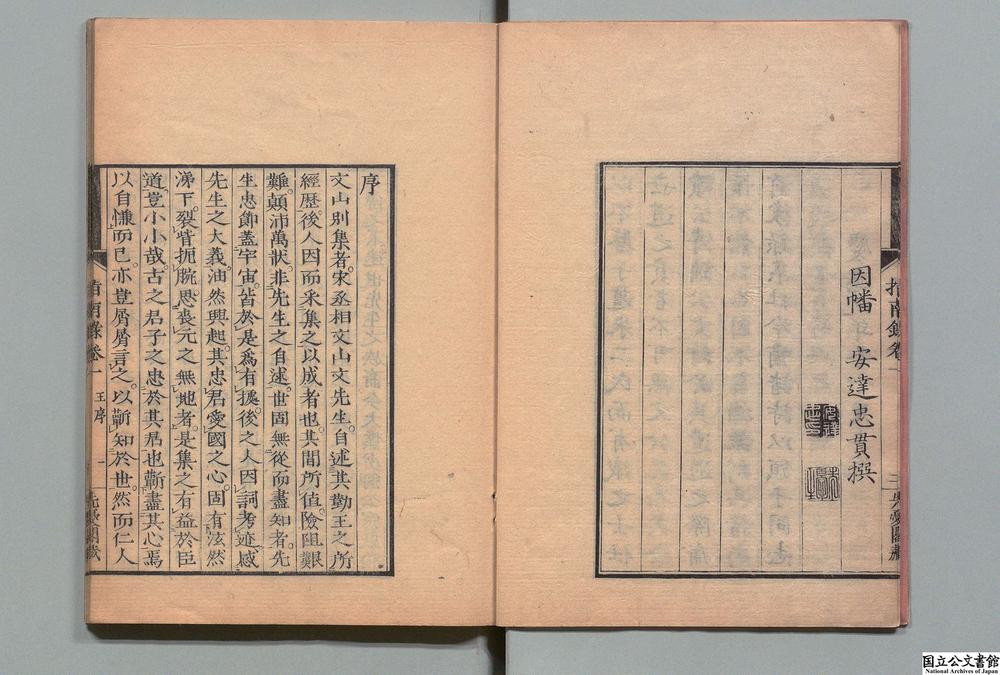 因幡 安達忠貫撰
指南錄卷一
三 先憂閣藏
序
文山別集者宋丞相文山文先生自述其勤王之所
經歷後人因而采集之以成者也其間所值險阻艱
難顛沛萬狀非先生之自述世固無從而盡知者先
生忠節蓋宇宙皆於是爲有據後之人因詞考迹感
先生之大義油然興起其忠君愛國之心固有泫然
涕下裂眥扼腕思喪元之無地者是集之有益於臣
道豈小小哉古之君子之忠於其君也蘄盡其心焉
以自慊而已亦豈屑屑言之以蘄知於世然而仁人
指南錄卷一 王序 一 先憂閣藏
国立公文書館
National Archives of Japan